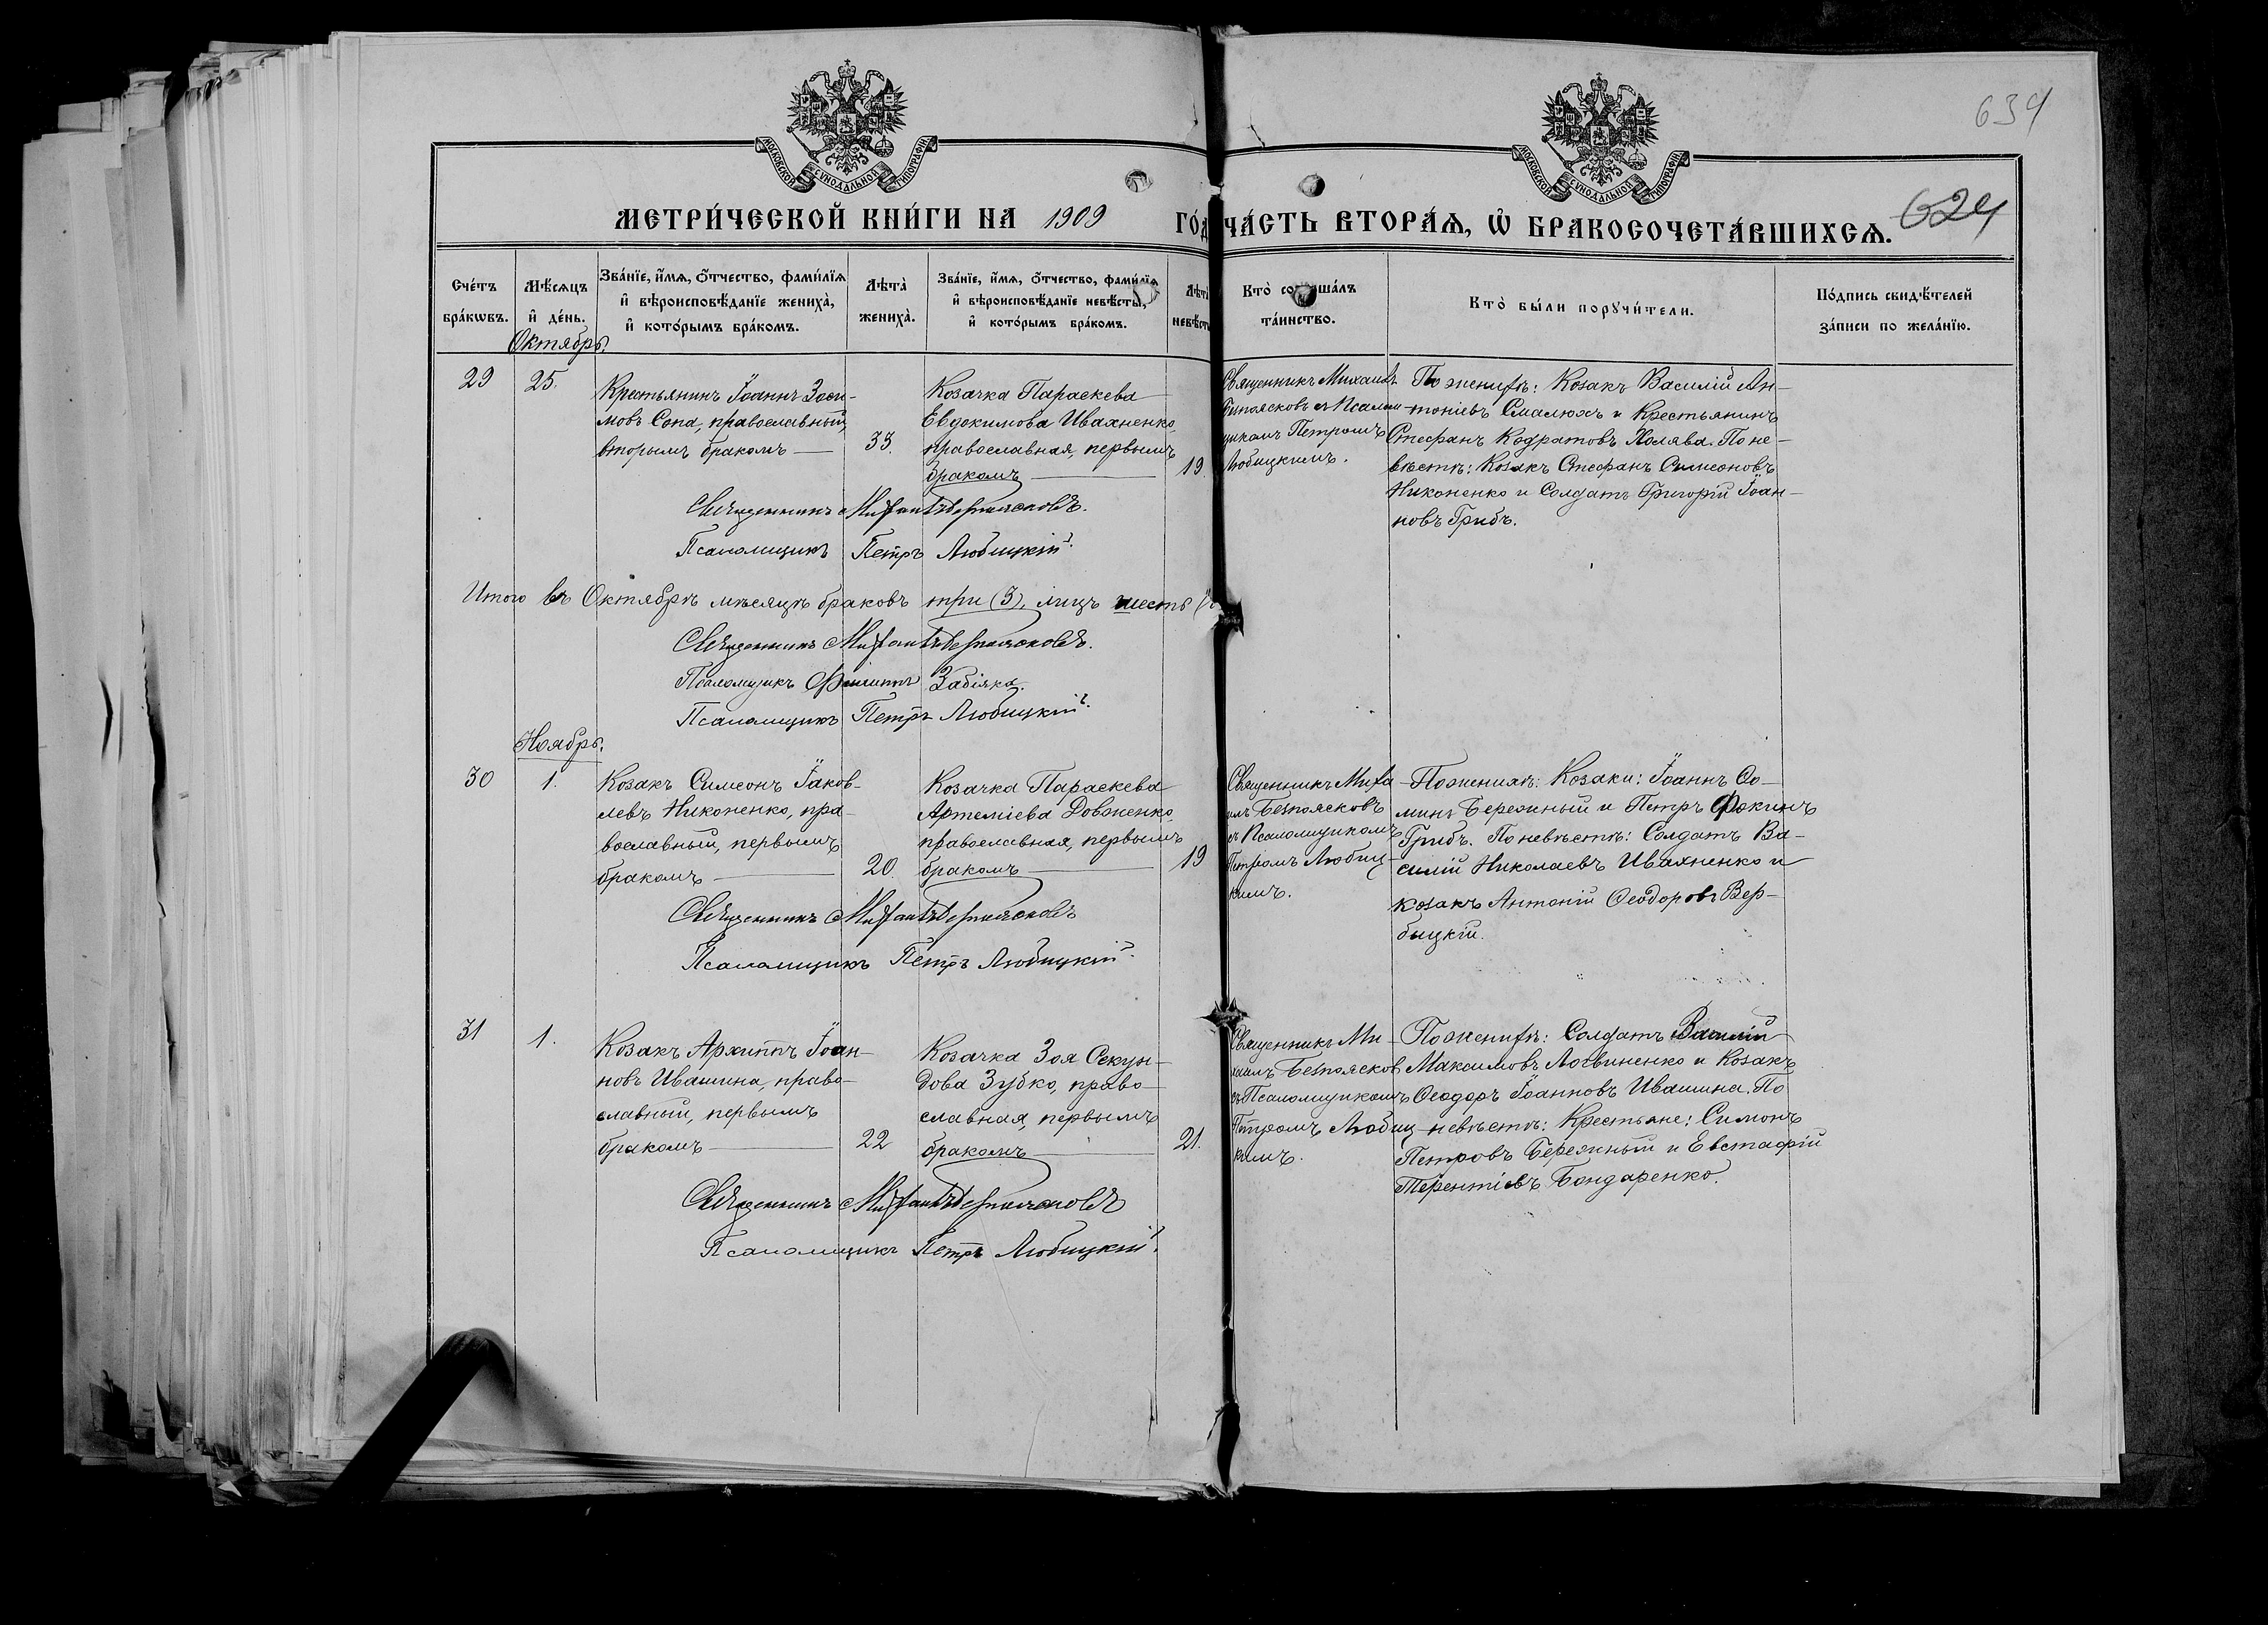 634
МОСКОВСКОЙ СУНОДАЛЬНОЙ ТИПОГРАФІИ
МОСКОВСКОЙ СУНОДАЛЬНОЙ ТИПОГРАФІИ
МЕТРИ́ЧЕСКОЙ КНИ́ГИ НА 1909 ГО́Д
ЧА́СТЬ ВТОРА́Ѧ, Ѡ҆ БРАКОСОЧЕТА́ВШИХСѦ.
624
Сче́тъ бра́кѡвъ.
Мѣ́сѧцъ и҆ де́нь.
Зва́нїе, и҆́мѧ, ѻ҆́тчество, фами́лїѧ
и҆ вѣроисповѣ́данїе жениха̀,
и҆ кото́рымъ бра́комъ.
Лѣта̀ жениха̀.
Зва́нїе, и҆́мѧ, ѻ҆́тчество, фами́лїѧ
и҆ вѣроисповѣ́данїе невѣ́сты,
и҆ кото́рымъ бра́комъ.
Лѣта̀ невѣ́сты
Кто̀
та́инство.
Кто̀ бы́ли порꙋчи́тели.
По́дпись свидѣ́телей
за́писи по жела́нїю.
Октябрь.
29
25.
Крестьянинъ Іоаннъ Зоси-
мовъ Сопа, православный,
вторымъ бракомъ
33.
Козачка Параскева
Евдокимова Ивахненко,
православная, первымъ
бракомъ
19.
Священникъ Михаилъ
Безпоясковъ съ Псалом-
щикомъ Петромъ
Любицкимъ.
По женихѣ: Козакъ Василій Ан-
тоніевъ Смалюхъ и Крестьянинъ
Стефанъ Кодратовъ Холява. По не-
вѣстѣ: Козакъ Стефанъ Симеоновъ
Никоненко и Солдатъ Григорій Іоан-
новъ Грибъ.
Священникъ Михаилъ Безпоясковъ.
Псаломщикъ Петръ Любицкій.
Итого въ Октябрѣ мѣсяцѣ браковъ три (3), лицъ шесть
Священникъ Михаилъ Безпоясковъ.
Псаломщикъ Филиппъ Забіяка.
Псаломщикъ Петръ Любицкій.
Ноябрь.
30
1.
Козакъ Симеонъ Іаков-
левъ Никоненко, пра-
вославный, первымъ
бракомъ
20.
Козачка Параскева
Артеміева Довженко,
православная, первымъ
бракомъ
19
Священникъ Миха-
илъ Безпоясковъ
съ Псаломщикомъ
Петромъ Любиц-
кимъ.
По женихѣ: Козаки: Іоаннъ Ѳо-
минъ Бережный и Петръ Фокинъ
Грибъ. По невѣстѣ: Солдатъ Ва-
силій Николаевъ Ивахненко и
козакъ Антоній Ѳеодоровъ Вер-
быцкій.
Священникъ Михаилъ Безпоясковъ
Псаломщикъ Петръ Любицкій.
31
1.
Козакъ Архиппъ Іоан-
новъ Ивашина, право-
славный, первымъ
бракомъ
22
Козачка Зоя Секун-
дова Зубко, право-
славная, первымъ
бракомъ
21.
Священникъ Ми-
хаилъ Безпоясков
съ Псаломщикомъ
Петромъ Любиц-
кимъ.
По женихѣ: Солдатъ Василій
Максимовъ Логвиненко и Козакъ
Ѳеодоръ Іоанновъ Ивашина. По
невѣстѣ: Крестьяне: Симонъ
Петровъ Бережный и Евстафій
Терентіевъ Бондаренко.
Священникъ Михаилъ Безпоясковъ
Псаломщикъ Петръ Любицкій.